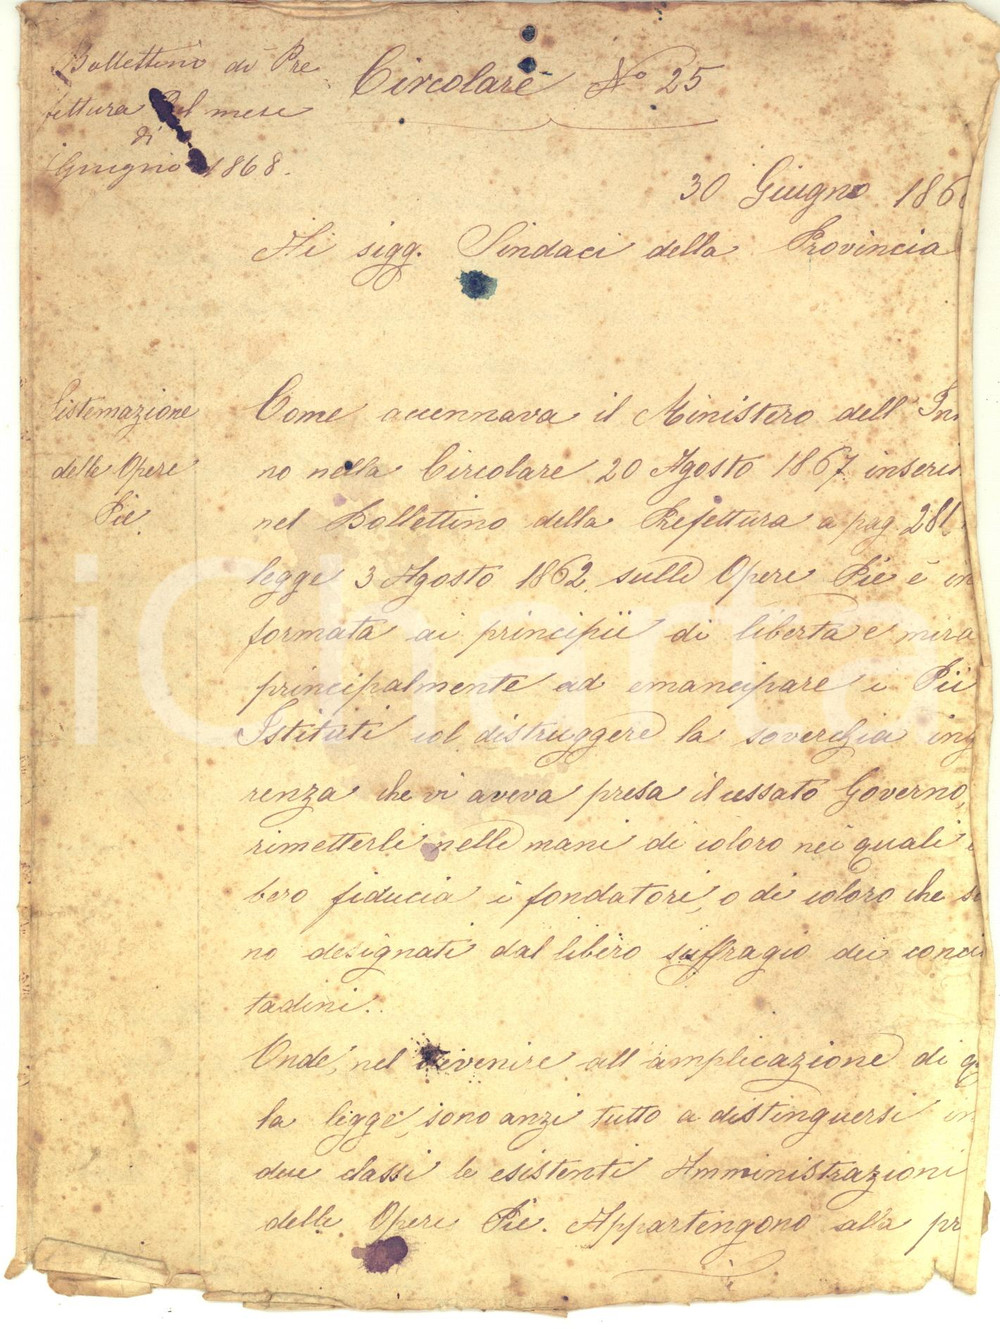 Bollettino di Pre
fettura del mese
di
Giugno 1868.
Circolare No 25
30 Giugno 186
Ai sigg. Sindaci della Provincia
Sistemazione
delle Opere
Pie
Come accennava il Ministero dell' In
no nella Circolare 20 Agosto 1867 inseri
nel Bollettino della Prefettura a pag. 281
legge 3 Agosto 1862 sulle Opere Pie è in
formata ai principii di libertà e mira
principalmente ad emancipare i Pii
Istituti col distruggere la soverchia ing
renza che vi aveva presa il cessato Governo,
rimetterli nelle mani di coloro nei quali
bero fiducia i fondatori, o di coloro che so
no designati dal libero suffragio dei conci
tadini.
Onde, nel divenire all'amplicazione di q
la legge, sono anzi tutto a distinguersi in
due classi le esistenti Amministrazioni
delle Opere Pie. Appartengono alla pr
iCharta